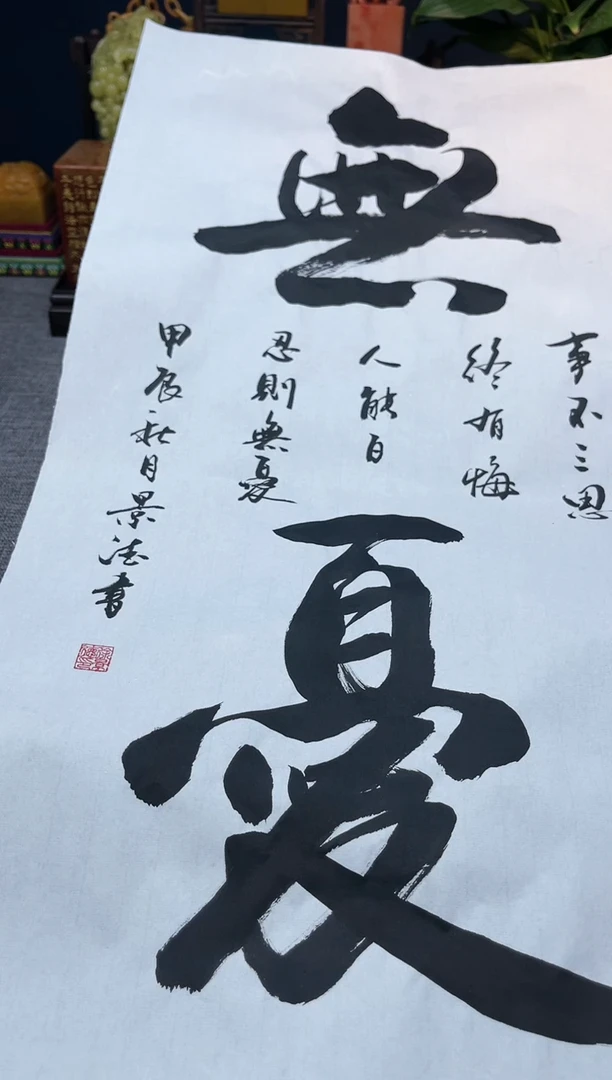 無
憂
事不三思
終有悔
人能百
忍則無憂
甲辰秋月景德書